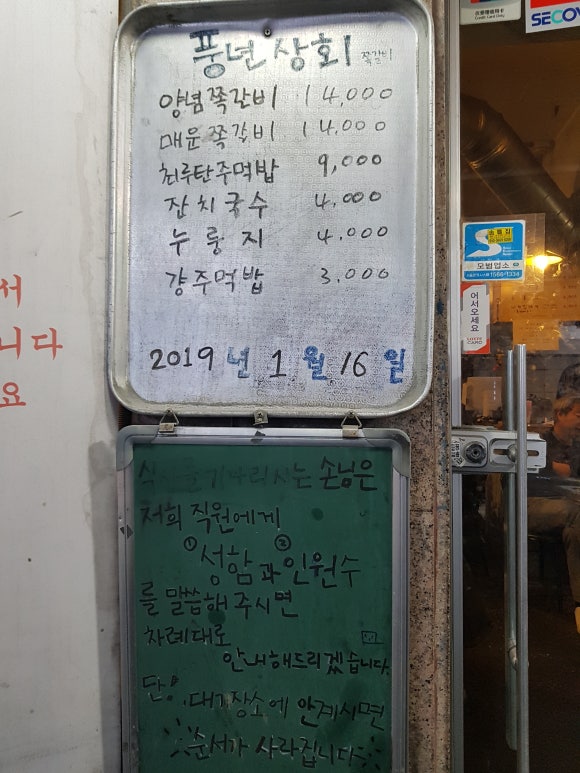 풍년상회 쪽갈비
양념쪽갈비 14,000
매운쪽갈비 14,000
최루탄주먹밥 9,000
잔치국수 4,000
누룽지 4,000
걍주먹밥 3,000
2019년 1월 16일
식사를 기다리시는 손님은
저희 직원에게
①성함과 ②인원수
를 말씀해주시면
차례대로
안내해드리겠습니다.
단! 대기장소에 안계시면
순서가 사라집니다
서
니다
요
SECO
S
모범업소
1566-1334
어서오세요
LOTTE CARD